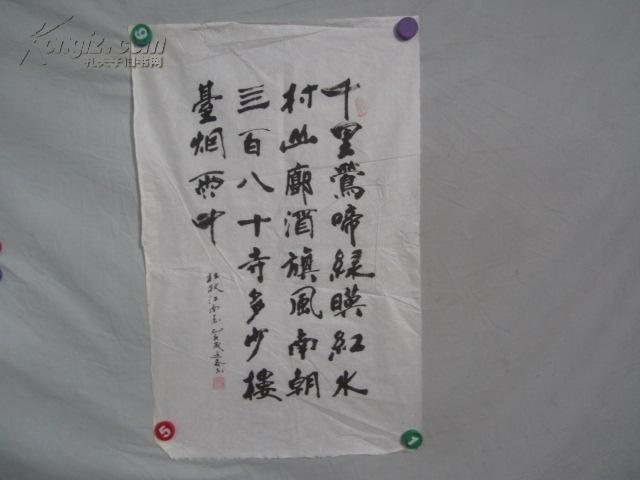 Kongfz.com
孔夫子旧书网
千里鶯啼緑暎紅水
村山廓酒旗風南朝
三百八十寺多少樓
臺烟雨中
杜牧江南春
6
5
1